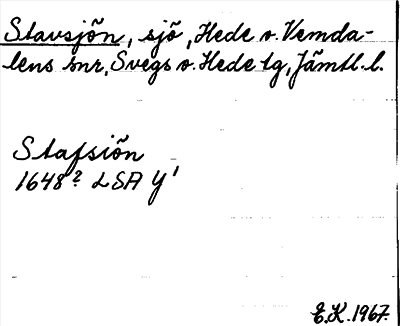 Stavsjön, sjö, Hede o. Vemda-
lens snr, Svegs o. Hede tg, Jämtl. l.
Stafsiön
1648? LSA Y1
E.K. 1967.